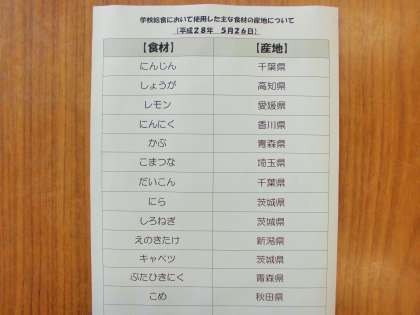 学校給食において使用した主な食材の産地について
(平成28年 5月26日)
【食材】 【産地】
にんじん 千葉県
しょうが 高知県
レモン 愛媛県
にんにく 香川県
かぶ 青森県
こまつな 埼玉県
だいこん 千葉県
にら 茨城県
しろねぎ 茨城県
えのきたけ 新潟県
キャベツ 茨城県
ぶたひきにく 青森県
こめ 秋田県